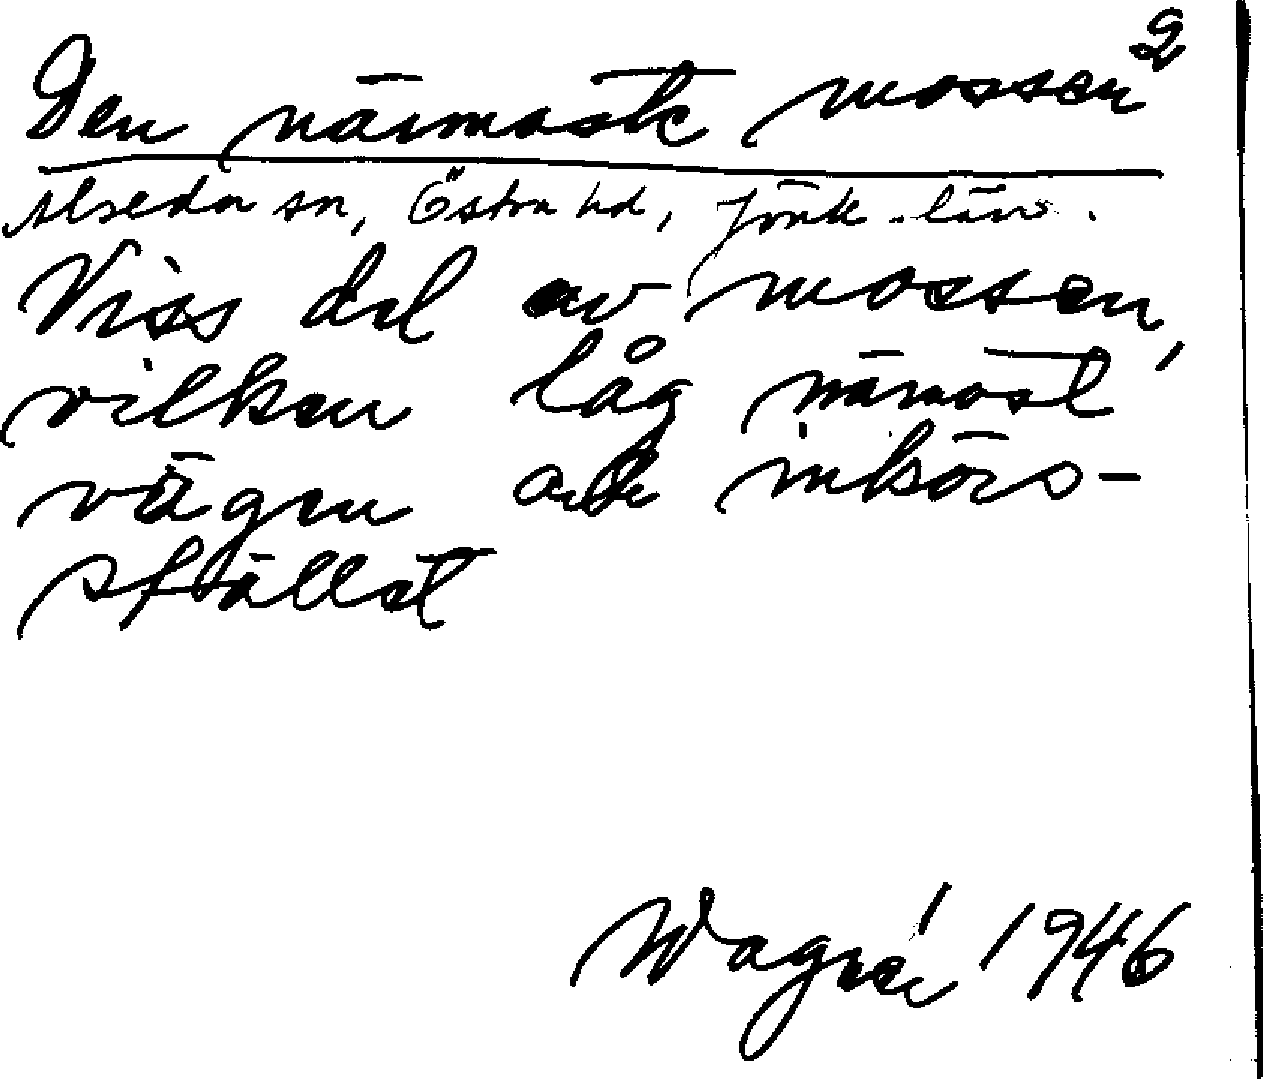 Den närmaste mossen 2
Alseda sn, Östra hd, Jönk. län.
Viss del av mossen,
vilken låg närmast
vägen och inkörs-
stället
Wagnér 1946